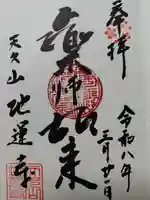 奉拝
令和八年
三月廿一日
薬師如来
天久山
地蓮寺